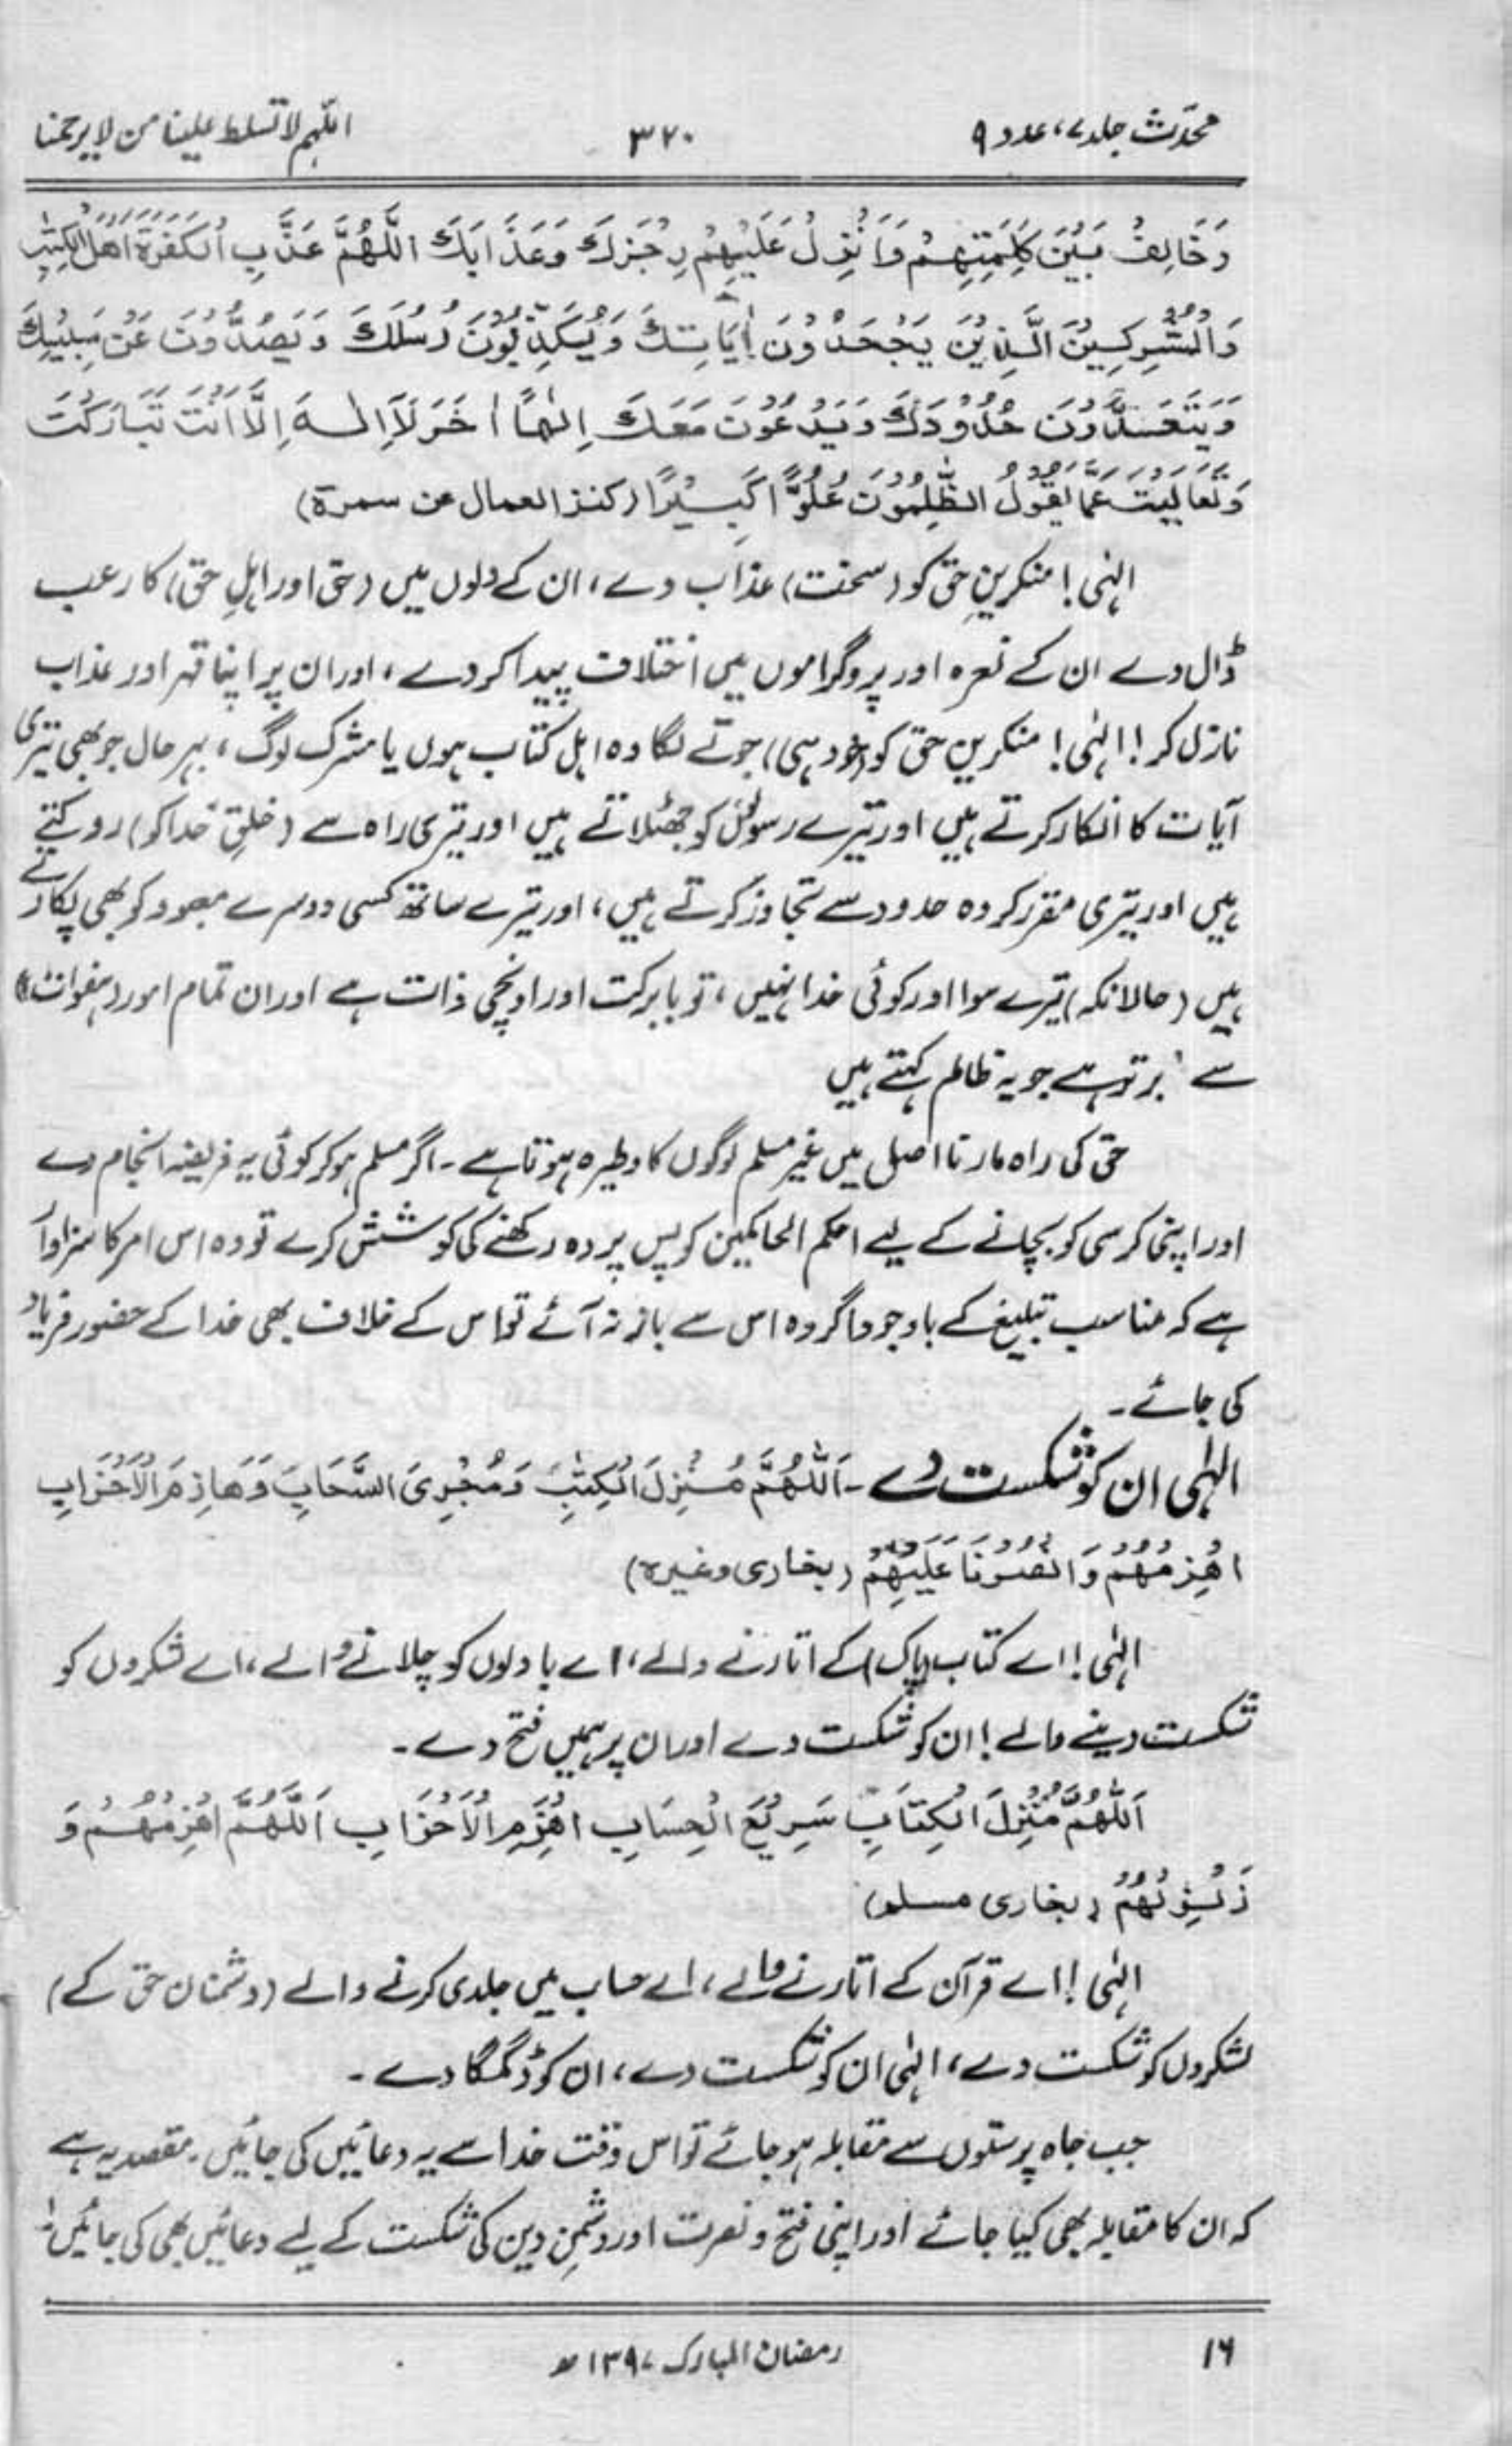 محدّث جلد ۷، عدد ۹
۳۷۰
اللّٰہم لا تسلط علینا من لا یرحمنا
وَخَالِفْ بَیْنَ كَلِمَتِهِمْ وَاَنْزِلْ عَلَیْهِمْ رِجْزَكَ وَعَذَابَكَ اللّٰهُمَّ عَذِّبِ الْكَفَرَةَ اَهْلَ الْكِتٰبِ
وَالْمُشْرِكِیْنَ الَّذِیْنَ یَجْحَدُوْنَ اٰیَاتِكَ وَیُكَذِّبُوْنَ رُسُلَكَ وَیَصُدُّوْنَ عَنْ سَبِیْلِكَ
وَیَتَعَدَّوْنَ حُدُوْدَكَ وَیَدْعُوْنَ مَعَكَ اِلٰهًا اٰخَرَ لَآ اِلٰهَ اِلَّا اَنْتَ تَبَارَكْتَ
وَتَعَالَیْتَ عَمَّا یَقُوْلُ الظّٰلِمُوْنَ عُلُوًّا كَبِیْرًا (کنز العمال عن سمرة)
الٰہی! منکرینِ حق کو (سخت) عذاب دے، ان کے دلوں میں (حق اور اہلِ حق) کا رعب
ڈال دے ان کے نعرہ اور پروگراموں میں اختلاف پیدا کردے، اور ان پر اپنا قہر اور عذاب
نازل کر! الٰہی! منکرینِ حق کو (خود ہی) جوتے لگا وہ اہل کتاب ہوں یا مشرک لوگ، بہر حال جو بھی تیری
آیات کا انکار کرتے ہیں اور تیرے رسولؐں کو جھٹلاتے ہیں اور تیری راہ سے (خلقِ خدا کو) روکتے
ہیں اور تیری مقرر کردہ حدود سے تجاوز کرتے ہیں، اور تیرے ساتھ کسی دوسرے معبود کو بھی پکارتے
ہیں (حالانکہ) تیرے سوا اور کوئی خدا نہیں، تو بابرکت اور اونچی ذات ہے اور ان تمام امور (ہفوات)
سے برتر ہے جو یہ ظالم کہتے ہیں
حق کی راہ مارنا اصل میں غیر مسلم لوگوں کا وطیرہ ہوتا ہے۔ اگر مسلم ہوکر کوئی یہ فریضہ انجام دے
اور اپنی کرسی کو بچانے کے لیے احکم الحاکمین کو پس پردہ رکھنے کی کوشش کرے تو وہ اس امر کا سزاوار
ہے کہ مناسب تبلیغ کے باوجود اگر وہ اس سے باز نہ آئے تو اس کے خلاف بھی خدا کے حضور فریاد
کی جائے۔
الٰہی ان کو شکست دے۔ اَللّٰهُمَّ مُنْزِلَ الْكِتٰبِ وَمُجْرِیَ السَّحَابِ وَهَازِمَ الْاَحْزَابِ
اهْزِمْهُمْ وَانْصُرْنَا عَلَیْهِمْ (بخاری وغیره)
الٰہی! اے کتاب (پاک) کے اتارنے والے، اے بادلوں کو چلانے والے، اے لشکروں کو
شکست دینے والے! ان کو شکست دے اور ان پر ہمیں فتح دے۔
اَللّٰهُمَّ مُنْزِلَ الْكِتَابِ سَرِیْعَ الْحِسَابِ اهْزِمِ الْاَحْزَابِ اَللّٰهُمَّ اهْزِمْهُمْ وَ
زَلْزِلْهُمْ (بخاری مسلم)
الٰہی! اے قرآن کے اتارنے والے، اے حساب میں جلدی کرنے والے (دشمنان حق کے)
لشکروں کو شکست دے، الٰہی ان کو شکست دے، ان کو ڈگمگا دے۔
جب جاہ پرستوں سے مقابلہ ہو جائے تو اس وقت خدا سے یہ دعائیں کی جائیں۔ مقصد یہ ہے
کہ ان کا مقابلہ بھی کیا جائے اور اپنی فتح و نصرت اور دشمنِ دین کی شکست کے لیے دعائیں بھی کی جائیں
۱۶
رمضان المبارک ۱۳۹۷ھ